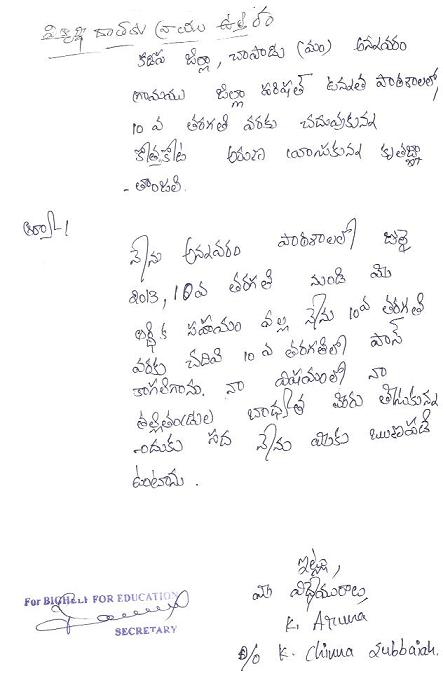 కడప జిల్లా, చాపాడు (మం) అన్నవరం
గ్రామము జిల్లా పరిషత్ ఉన్నత పాఠశాలలో,
10 వ తరగతి వరకు చదువుకున్న
కొత్తకోట అరుణ వ్రాసుకున్న కృతజ్ఞ
- తాంజలి.
నేను అన్నవరం పాఠశాలలో జులై
2013, 10వ తరగతి నుండి మీ
ఆర్థిక సహాయం వల్ల నేను 10వ తరగతి
వరకు చదివి 10 వ తరగతిలో పాస్
కాగలిగాను. నా విషయంలో నా
తల్లితండ్రుల బాధ్యత మీరు తీసుకున్న
ందుకు సదా నేను మీకు ఋణపడి
ఉంటాను.
ఇట్లు,
మీ విధేయురాలు,
K. Aruna
D/o K. Chinna Subbaiah.
For BIGHELP FOR EDUCATION
SECRETARY